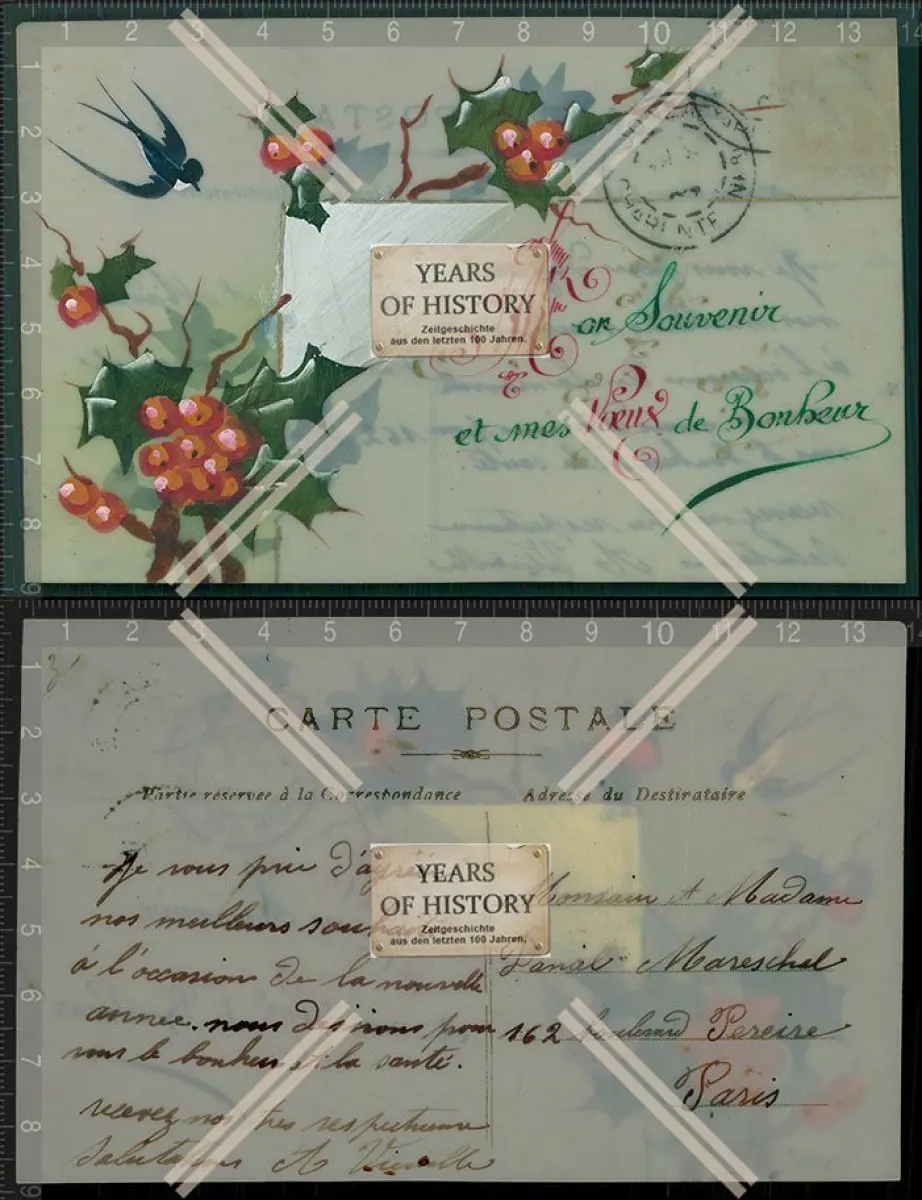 1 2 3 4 5 6 7 8 9 10 11 12 13 14
1
2
3
4
5
6
7
8
9
CHARENTE
YEARS
OF HISTORY
Zeitgeschichte
aus den letzten 100 Jahren.
Mon Souvenir
et mes Vœux de Bonheur
1 2 3 4 5 6 7 8 9 10 11 12 13
1
2
3
4
5
6
7
8
9
CARTE POSTALE
Partie réservée à la Correspondance
Adresse du Destinataire
Je vous prie d'agréer
nos meilleurs souhaits
à l'occasion de la nouvelle
année. nous desirons pour
vous le bonheur et la santé.
recevez nos tres respectueuse
Salutations A
YEARS
OF HISTORY
Zeitgeschichte
aus den letzten 100 Jahren.
Monsieur et Madame
Mareschal
162 boulevard Pereire
Paris